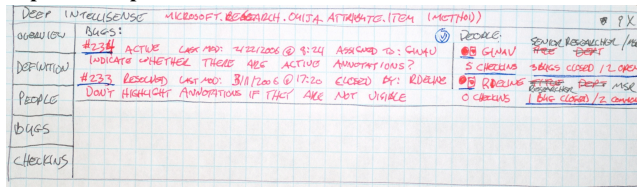 DEEP INTELLISENSE MICROSOFT.RESEARCH.OMITA ATTRIBUTE.ITEM (METHOD) PX
OVERVIEW
DEFINITION
PEOPLE
BUGS
CHECKINS
BUGS:
#234 ACTIVE LAST MOD: 2/22/2006 @ 9:24 ASSIGNED TO: GINAV
INDICATE WHETHER THERE ARE ACTIVE ANNOTATIONS?
#233 RESOLVED LAST MOD: 3/1/2006 @ 17:20 CLOSED BY: RDELINE
DON'T HIGHLIGHT ANNOTATIONS IF THEY ARE NOT VISIBLE
PEOPLE:
GINAV SENIOR RESEARCHER /MSR
5 CHECKINS 3 BUGS CLOSED / 2 OPEN
RDELINE RESEARCHER MSR
0 CHECKINS 1 BUG CLOSED / 2